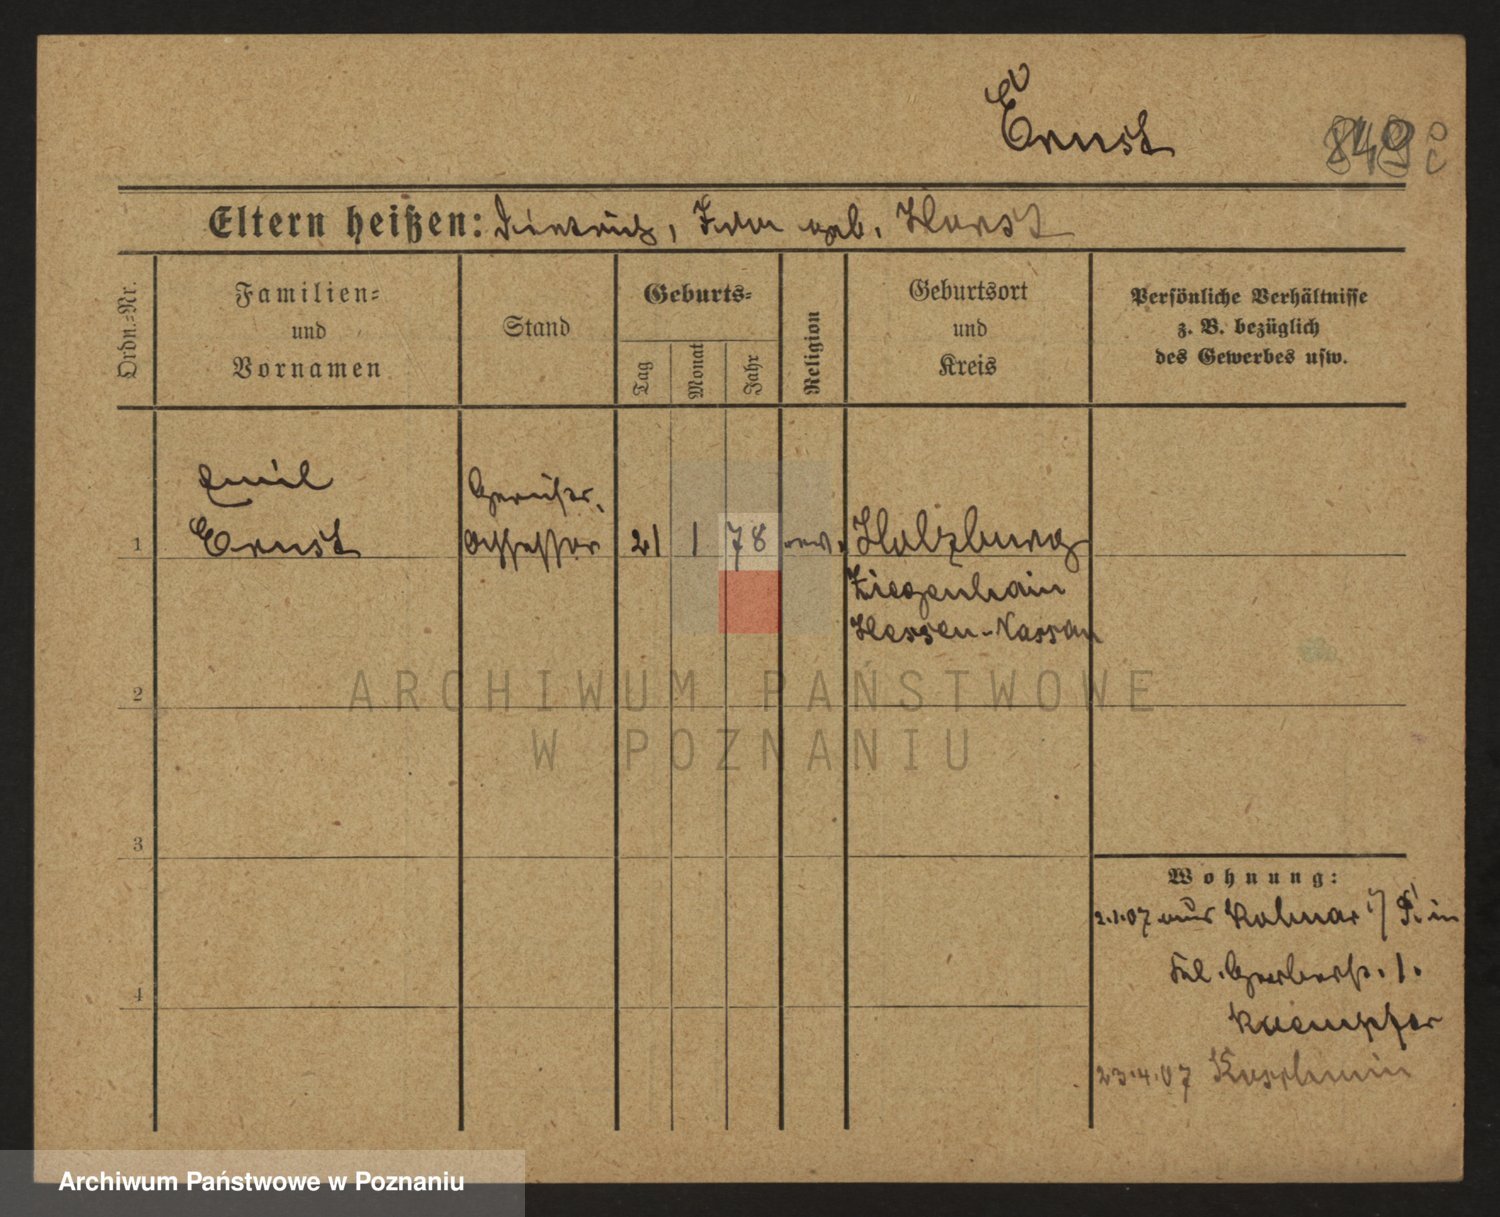 Ernst
Eltern heißen: Dietrich, Ida geb. Horst
Ordn.-Nr.
Familien-
und
Vornamen
Stand
Geburts-
Tag
Monat
Jahr
Religion
Geburtsort
und
Kreis
Persönliche Verhältnisse
z. B. bezüglich
des Gewerbes usw.
Emil
Gerichts-
1 Ernst assessor 21 1 78 Holzburg
Ziegenhain
Hessen-Nassau
ARCHIWUM PAŃSTWOWE
2
W POZNANIU
3
Wohnung:
2.1.07 aus Kolmar i/ P. in
Gerberstr. 1.
4
Kaempfer
23.4.07 Koschmin
Archiwum Państwowe w Poznaniu